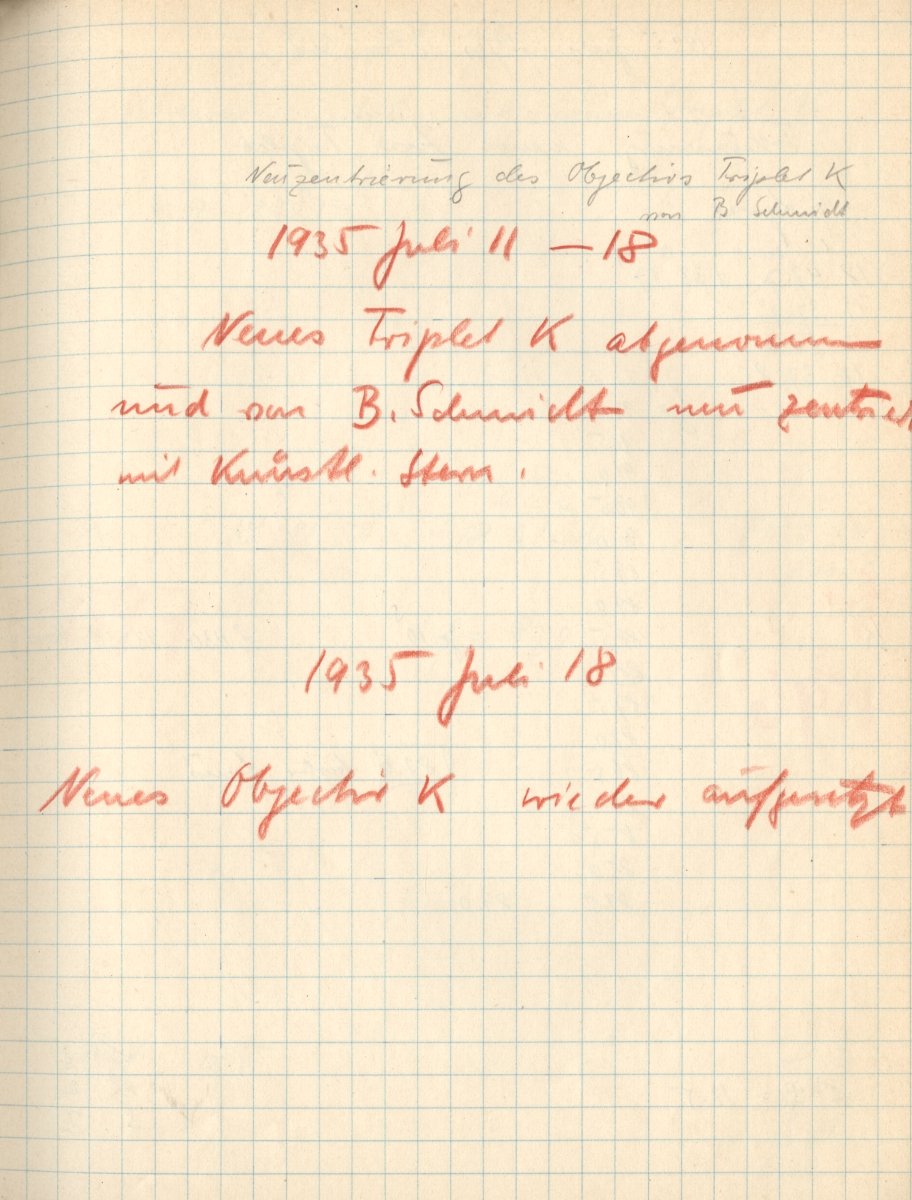 Neuzentrierung des Objectivs Triplet K
von B Schmidt
1935 Juli 11 — 18
Neues Triplet K abgenommen
und von B. Schmidt neu zentriert
mit Künstl. Stern.
1935 Juli 18
Neues Objectiv K wieder aufgesetzt